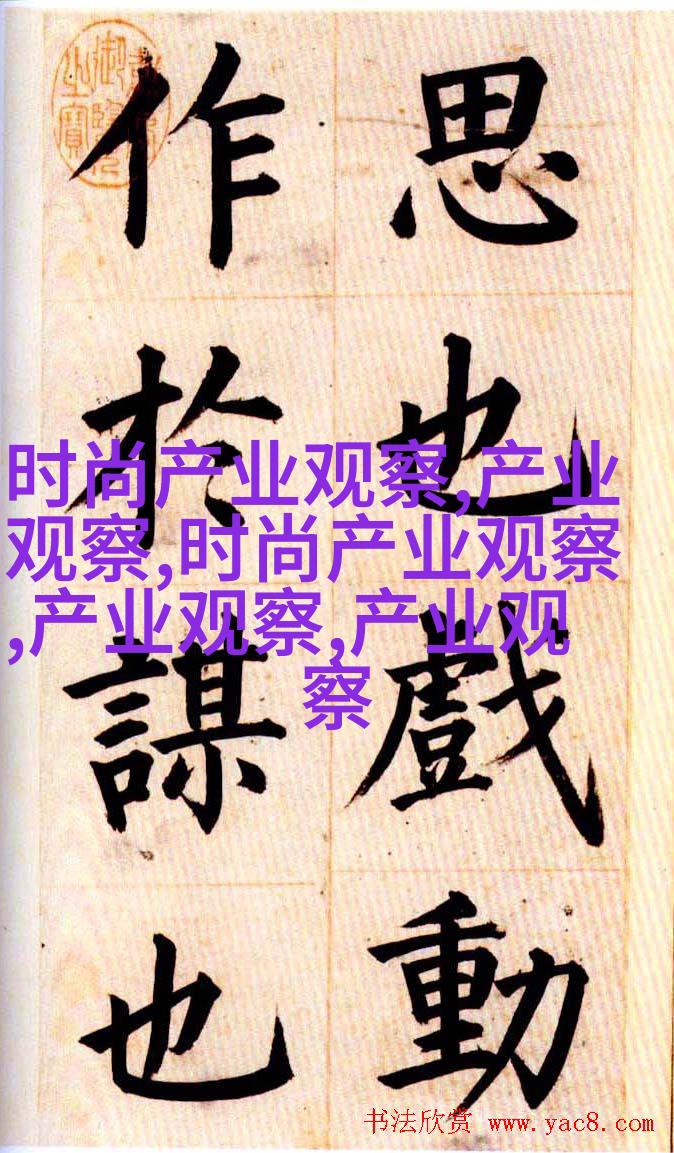 思也戲動
作於謀也
时尚产业观察,产业
观察,时尚产业观察
,产业观察,产业观
察
书法欣赏 www.yac8.com